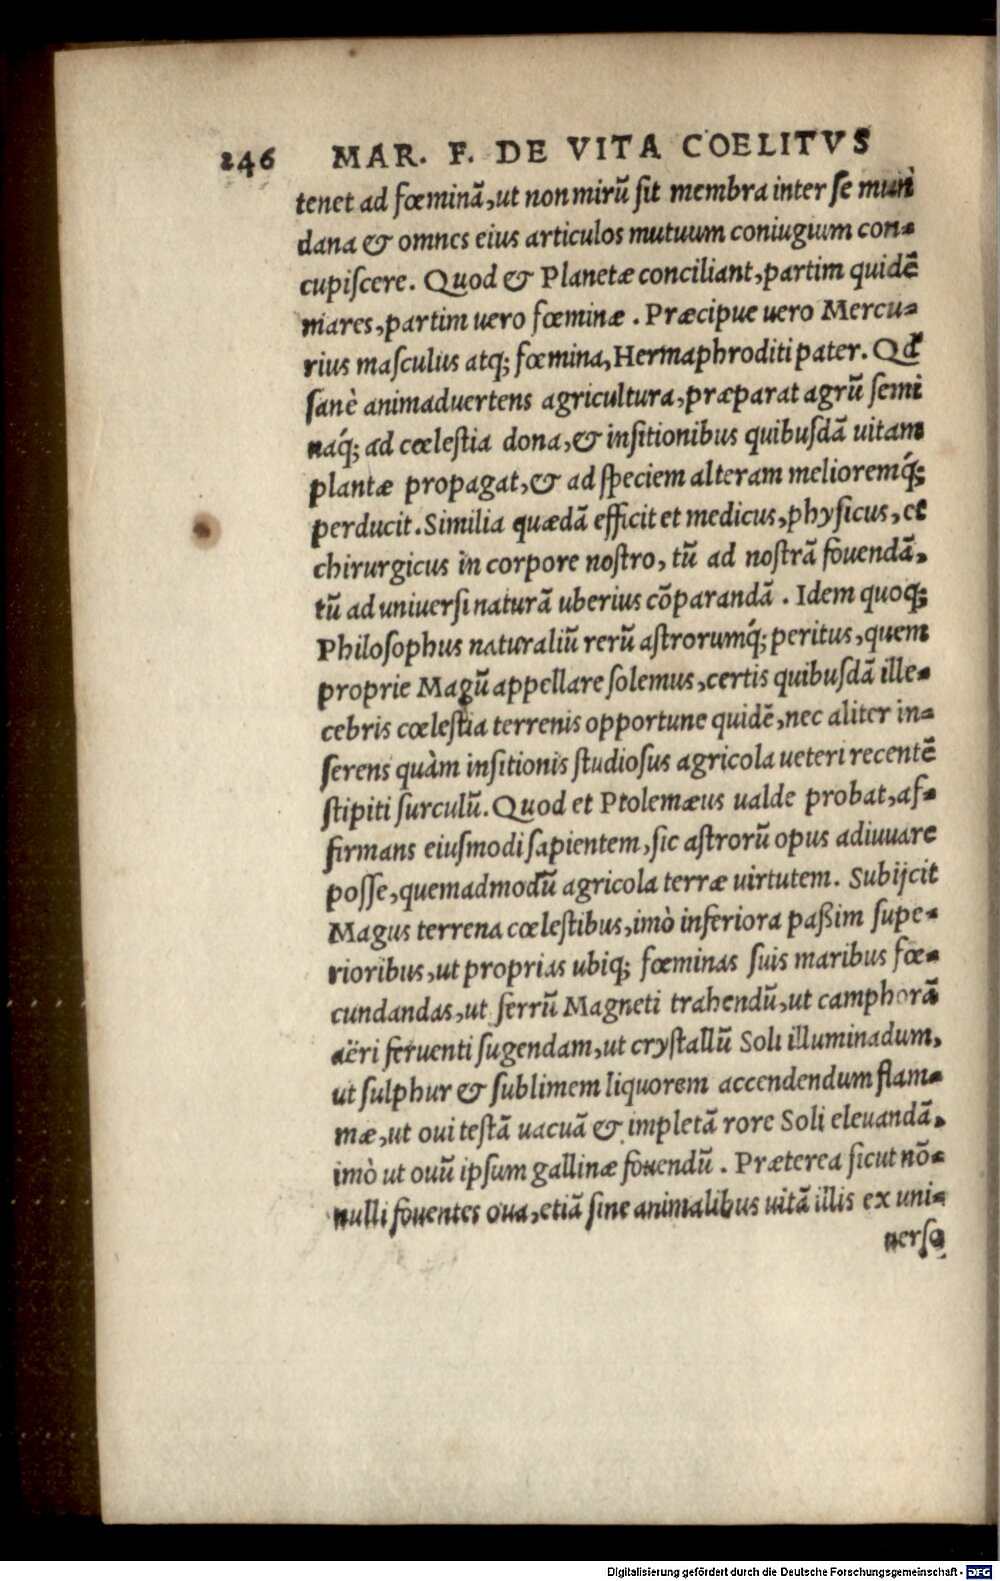 246 MAR. F. DE VITA COELITVS
tenet ad fœminã, ut non mirũ ſit membra inter ſe mun
dana & omnes eius articulos mutuum coniugium con-
cupiſcere. Quod & Planetæ conciliant, partim quidẽ
mares, partim uero fœminæ. Præcipue uero Mercu-
rius maſculus atq; fœmina, Hermaphroditi pater. Qd
ſanè animaduertens agricultura, præparat agrũ ſemi
naq́; ad cœleſtia dona, & inſitionibus quibuſdã uitam
plantæ propagat, & ad ſpeciem alteram melioremq́;
perducit. Similia quædã efficit et medicus, phyſicus, et
chirurgicus in corpore noſtro, tũ ad noſtrã fouendã,
tũ ad uniuerſi naturã uberius cõparandã. Idem quoq;
Philoſophus naturaliũ rerũ aſtrorumq́; peritus, quem
proprie Magũ appellare ſolemus, certis quibuſdã ille-
cebris cœleſtia terrenis opportune quidẽ, nec aliter in-
ſerens quàm inſitionis ſtudioſus agricola ueteri recentẽ
ſtipiti ſurculũ. Quod et Ptolemæus ualde probat, af-
firmans eiuſmodi ſapientem, ſic aſtrorũ opus adiuuare
poſſe, quemadmodũ agricola terræ uirtutem. Subijcit
Magus terrena cœleſtibus, imò inferiora paßim ſupe-
rioribus, ut proprias ubiq; fœminas ſuis maribus fœ-
cundandas, ut ferrũ Magneti trahendũ, ut camphorã
aëri feruenti ſugendam, ut cryſtallũ Soli illuminadum,
ut ſulphur & ſublimem liquorem accendendum flam-
mæ, ut oui teſtã uacuã & impletã rore Soli eleuandã,
imò ut ouũ ipſum gallinæ fouendũ. Præterea ſicut nõ-
nulli fouentes oua, etiã ſine animalibus uitã illis ex uni-
uerſo
Digitalisierung gefördert durch die Deutsche Forschungsgemeinschaft - DFG